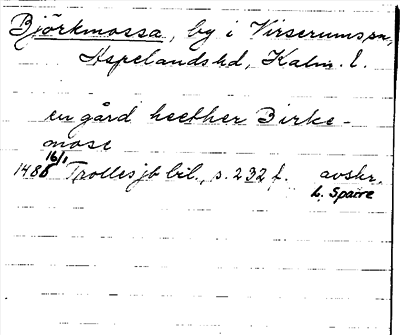 Björkmossa, by i Virserums sn,
Aspelands hd, Kalm. l.
en gård heether Birke-
mose
16/1
1485 Trollesjb bil., s. 232 f. avskr.
L. Sparre